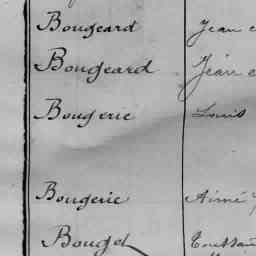 Bougeard Jean
Bougeard Jean
Bougerie Louis
Bougerie Aimé
Bougel Toussaint